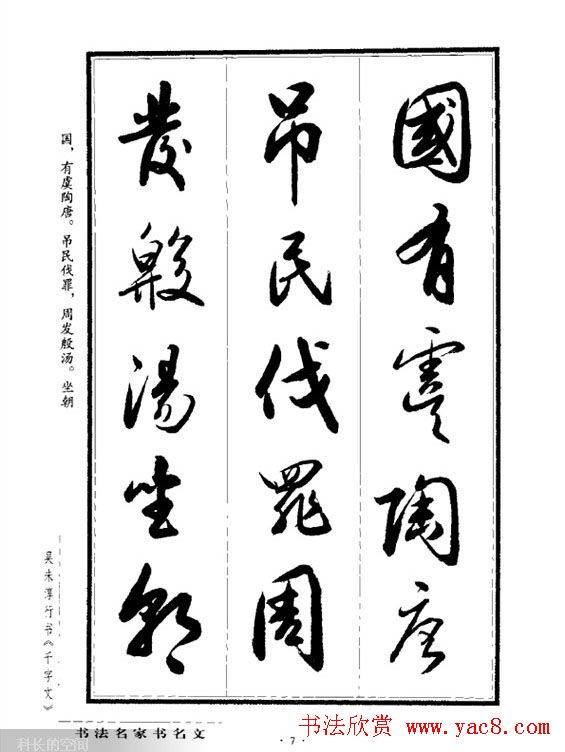 國有虞陶唐
吊民伐罪周
發殷湯坐朝
国，有虞陶唐。吊民伐罪，周发殷汤。坐朝
吴未淳行书《千字文》
书法名家书名文
·7·
科长的空间
书法欣赏 www.yac8.com